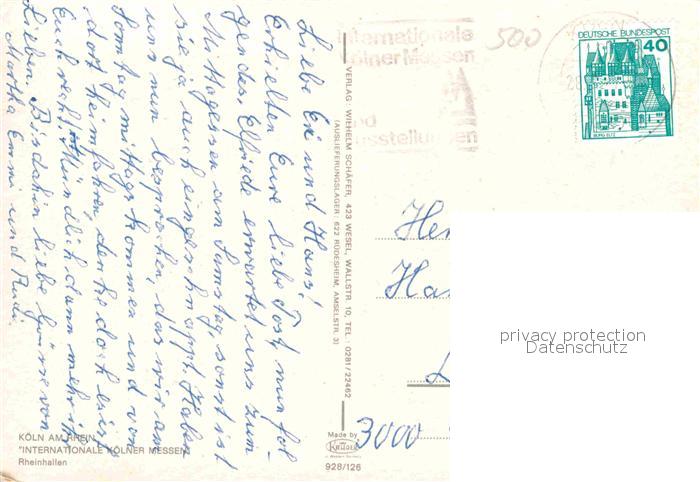 Liebe Evi und Hans!
Erhielten Eure liebe Post, nun fol-
gendes. Elfriede erwartet uns zum
Mittagessen am Samstag, sonst ist
sie ja auch eingeschnappt. Haben
uns nun besprochen, das wir am
Sonntag mittags kommen und von
dort heimfahren, denke doch es ist
Euch recht. Mündlich dann mehr ihr
Lieben. Bis dahin liebe Grüsse von
Martha Emmi und
KÖLN AM RHEIN
"INTERNATIONALE KÖLNER MESSEN"
Rheinhallen
VERLAG: WILHELM SCHÄFER, 423 WESEL, WALLSTR. 10, TEL. 0281/22462
(AUSLIEFERUNGSLAGER: 622 RÜDESHEIM, AMSELSTR. 3)
Made by
KRÜGER
928/126
Internationale
Kölner Messen
und
Ausstellungen
500
DEUTSCHE BUNDESPOST
40
BURG ELTZ
Her
Ha
3000
privacy protection
Datenschutz